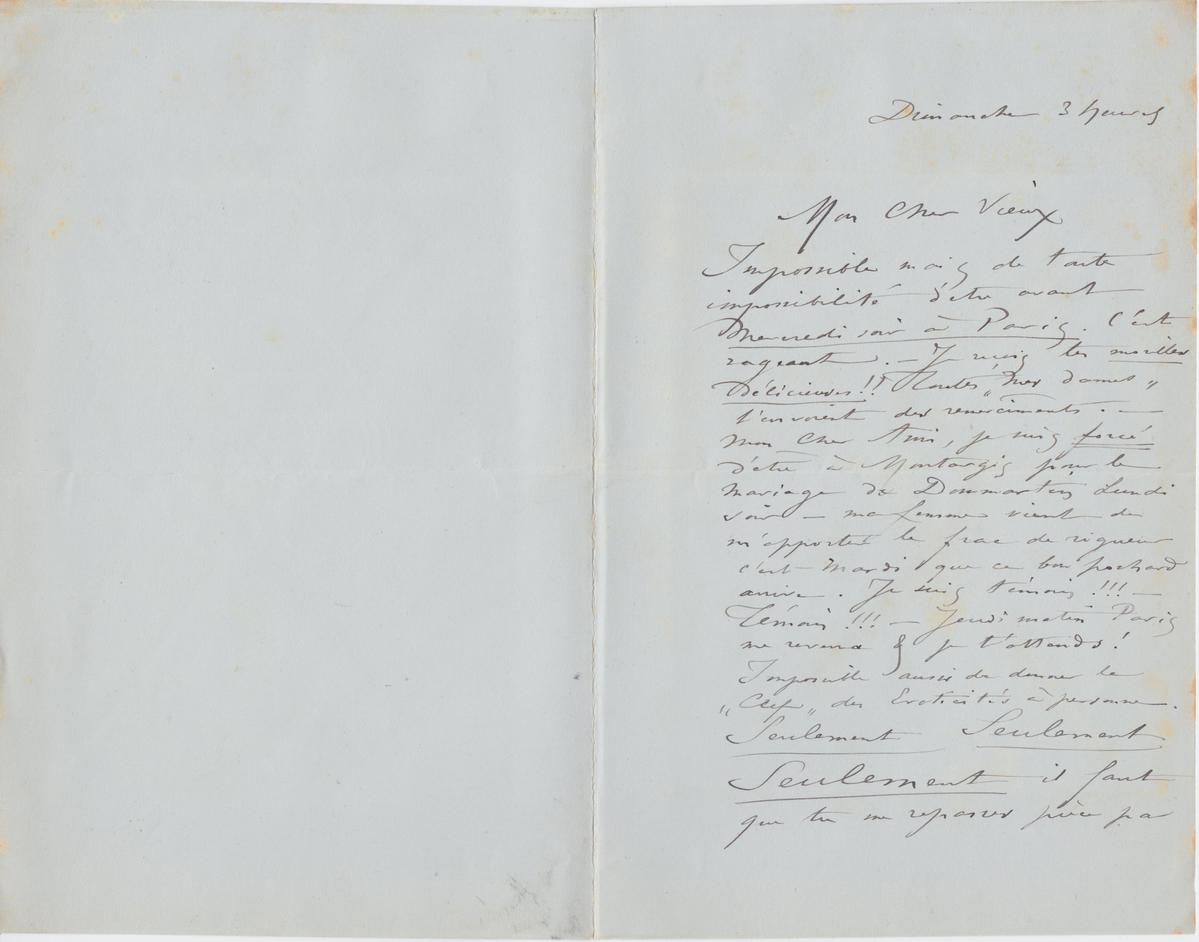 Dimanche 3 heures
Mon Cher Vieux
Impossible mais de toute
impossibilité d'être avant
Mercredi soir à Paris. C'est
rageant. — Je reçois les morilles
Délicieuses!! Toutes „mes dames„
t'envoient des remerciments. —
Mon Cher Ami, je suis forcé
d'être à Montargis pour le
mariage de Dommartin Lundi
soir — ma femme vient de
m'apporter le frac de rigueur
c'est Mardi que ce bon pochard
arrive. Je suis témoin!!! —
Témoin!!! — Jeudi matin Paris
me reverra & je t'attends!
Impossible aussi de donner la
„Clef„ des Eroticités à personne.
Seulement Seulement
Seulement il faut
que tu me repasses pièce pa